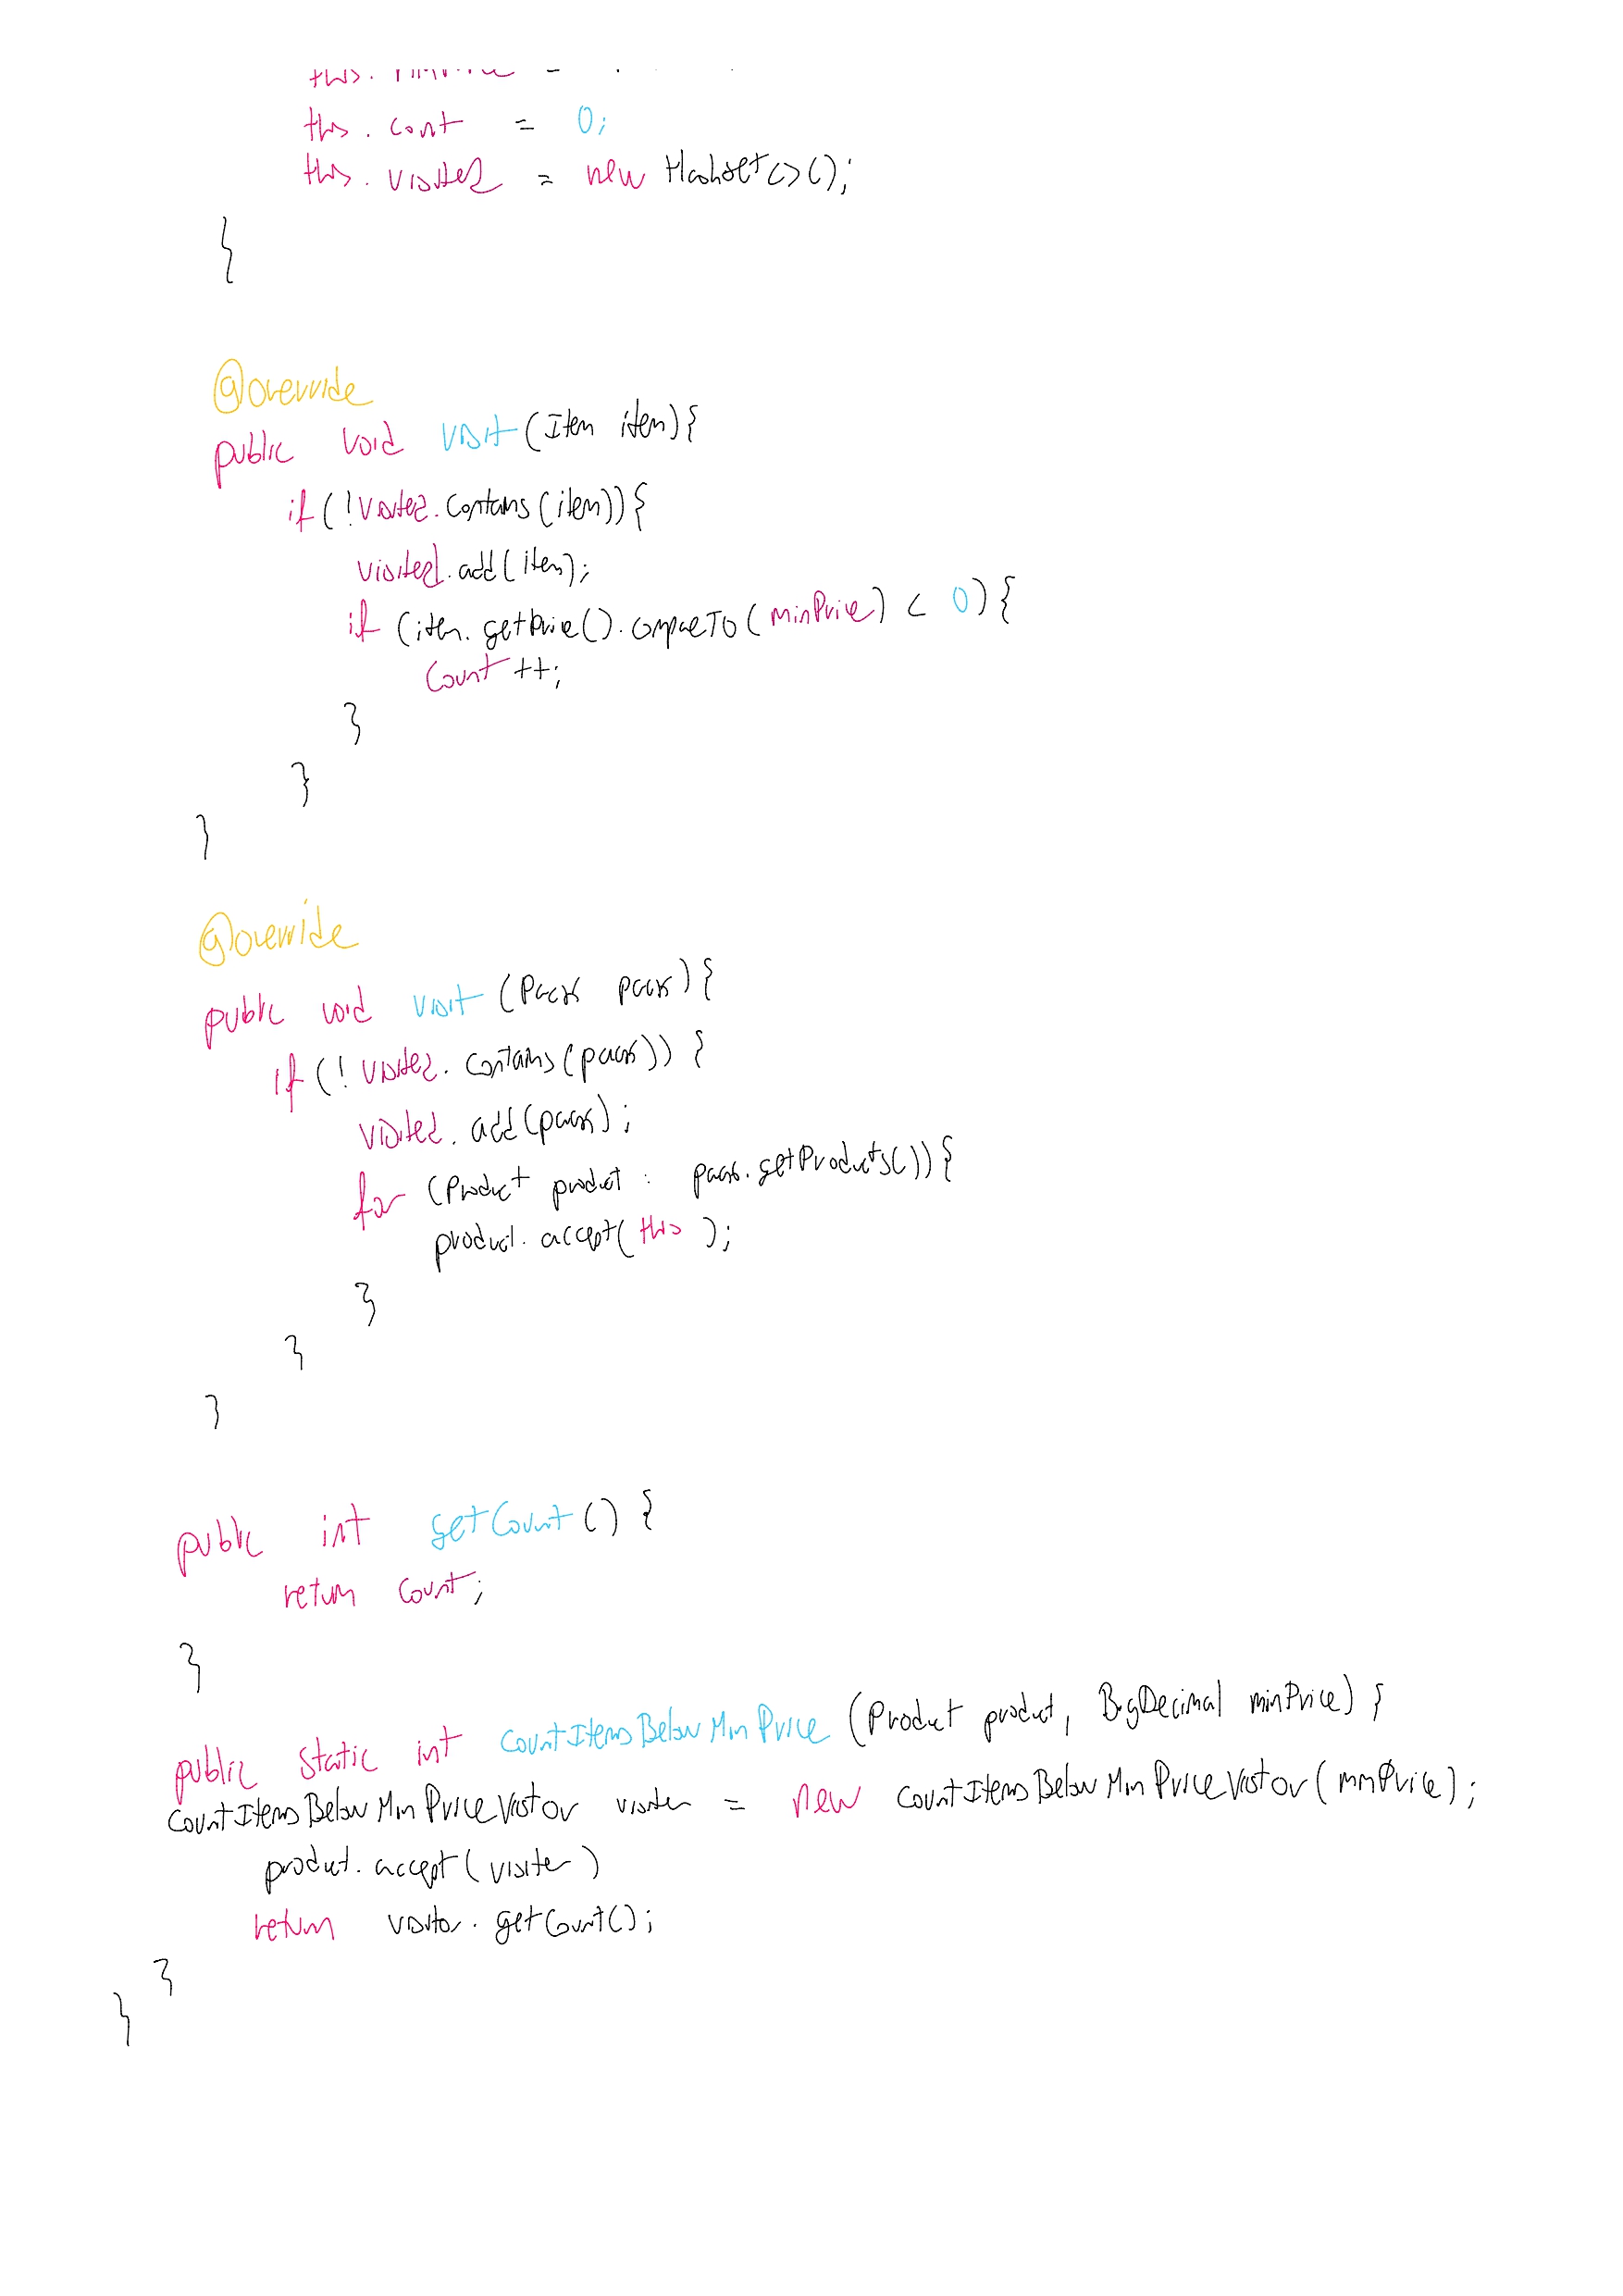 this.
this.cont = 0;
this.visited = new HashSet<>();
}
@override
public void visit(Item item){
if(!visited.contains(item)){
visited.add(item);
if (item.getPrice().compareTo(minPrice) < 0){
count++;
}
}
}
@override
public void visit (Pack pack){
if(!visited.contains(pack)) {
visited.add(pack);
for (Product product : pack.getProducts()){
product.accept(this);
}
}
}
public int getCount() {
return count;
}
public static int countItemsBelowMinPrice (Product product, BigDecimal minPrice) {
CountItemsBelowMinPriceVisitor visitor = new CountItemsBelowMinPriceVisitor(minPrice);
product.accept(visitor)
return visitor.getCount();
}
}